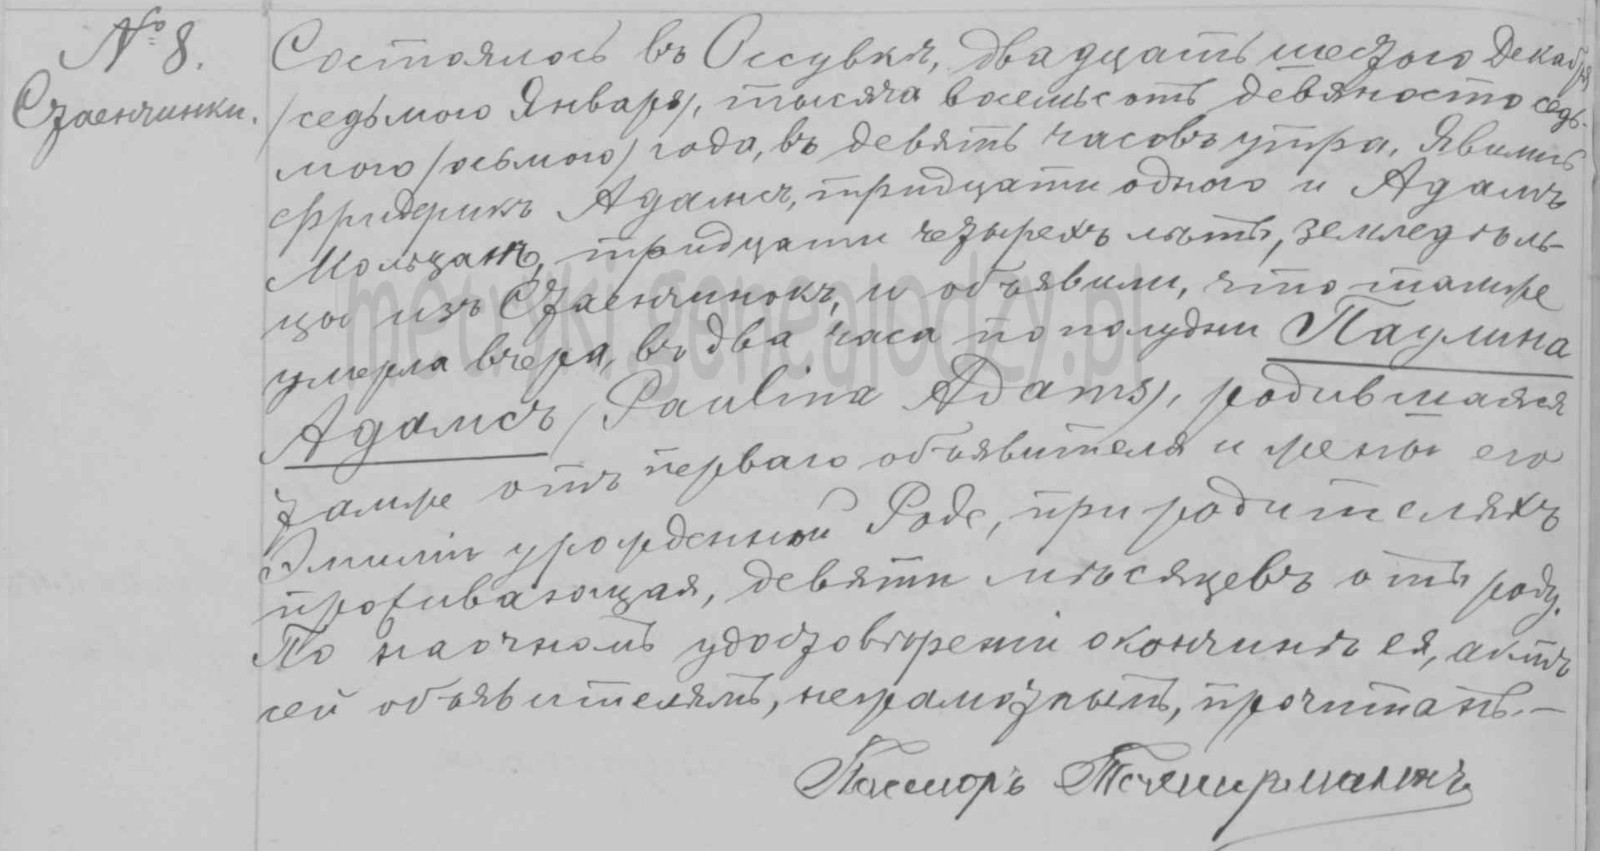 № 8.
Стаенчинки.
Состоялось въ Оссувкѣ, двадцать шестого Декабря
/седьмого Января/, тысяча восемьсотъ девяносто седь-
мого /осьмого/ года, въ девять часовъ утра. Явились
Фридерикъ Адамсъ, тридцати одного и Адамъ
Мольцанъ, тридцати четырехъ лѣтъ, земледѣль-
цы изъ Стаенчинокъ, и объявили, что тамже
умерла вчера, въ два часа по полудни Паулина
Адамсъ /Paulina Adams/, родившаяся
тамже отъ перваго объявителя и жены его
Эмиліи урожденной Раде, при родителяхъ
проживающая, девяти мѣсяцевъ отъ роду.
По наочномъ удостовѣреніи о кончинѣ ея, актъ
сей объявителямъ, неграмотнымъ, прочитанъ.—
Пасторъ
metryki.genealodzy.pl